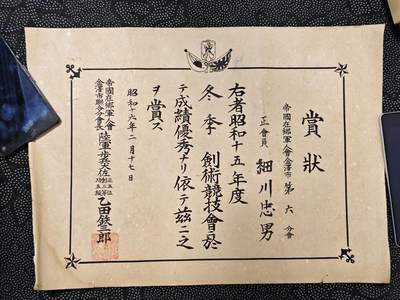 賞狀
帝國在鄉軍人會金澤市第六分會
正會員 細川忠男
右者昭和十五年度
冬季劍術競技會ニ於
テ成績優秀ナリ依テ茲ニ之
ヲ賞ス
昭和十六年二月十七日
帝國在鄉軍人會
金澤市聯合分會長
陸軍步兵大佐
乙田鉄三郎